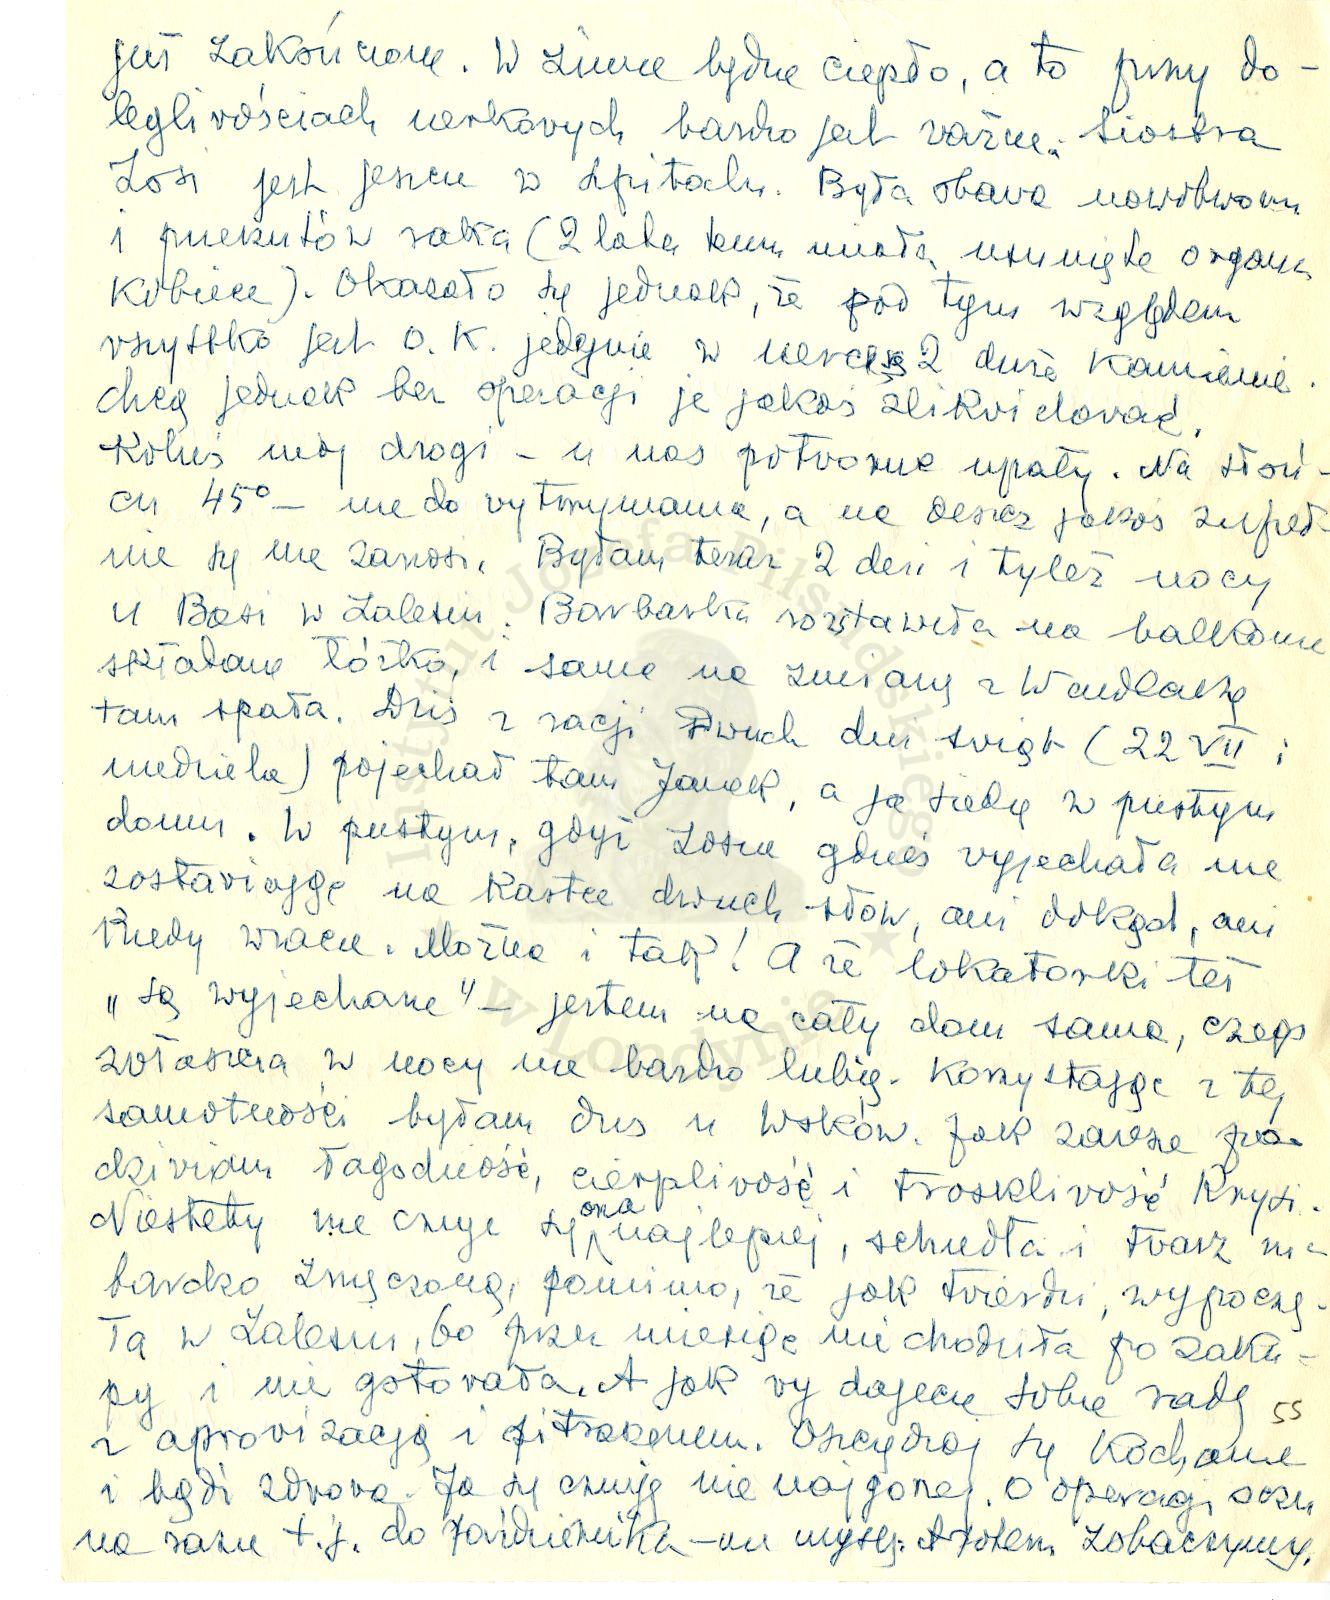 już zakończone. W zimie będzie ciepło, a to przy do-
legliwościach nerkowych bardzo jest ważne. Siostra
Zosi jest jeszcze w szpitalu. Była obawa nowotworu
i przerzutów raka (2 lata temu miała usunięte organa
kobiece). Okazało się jednak, że pod tym względem
wszystko jest O.K. jedynie w nerce są 2 duże kamienie.
chcą jednak bez operacji je jakoś zlikwidować.
mój drogi – u nas potworne upały. Na słoń-
cu 45° – nie do wytrzymania, a na deszcz jakoś zupeł-
nie się nie zanosi. Byłam teraz 2 dni i tyleż nocy
u Basi w Zalesiu. Barbarka rozstawiła na balkonie
składane łóżko, i sama na zmianę z
tam spała. Dziś z racji dwuch dni świąt (22 VII i
niedziela) pojechał tam Janek, a ja siedzę w pustym
domu. W pustym, gdyż Zosia gdzieś wyjechała nie
zostawiając na kartce dwuch słów, ani dokąd, ani
kiedy wraca. Można i tak! A że lokatorki też
„są wyjechane" – jestem na cały dom sama, czego
zwłaszcza w nocy nie bardzo lubię. Korzystając z tej
samotności byłam dziś u Wsków. Jak zawsze po-
dziwiam łagodność, cierpliwość i troskliwość Krysi.
Niestety nie czuje się ona najlepiej, schudła i twarz ma
bardzo zmęczoną, pomimo, że jak twierdzi, wypoczę-
ła w Zalesiu, bo przez miesiąc nie chodziła po zaku-
py i nie gotowała. A jak wy dajecie sobie radę
z aprowizacją i pitraszeniem. Oszczędzaj się Kochanie
i bądź zdrowa. Ja się czuję nie najgorzej. O operacji oczu
na razie t.j. do października – nie myślę. A potem zobaczymy.
55
Instytut Józefa Piłsudskiego
w Londynie